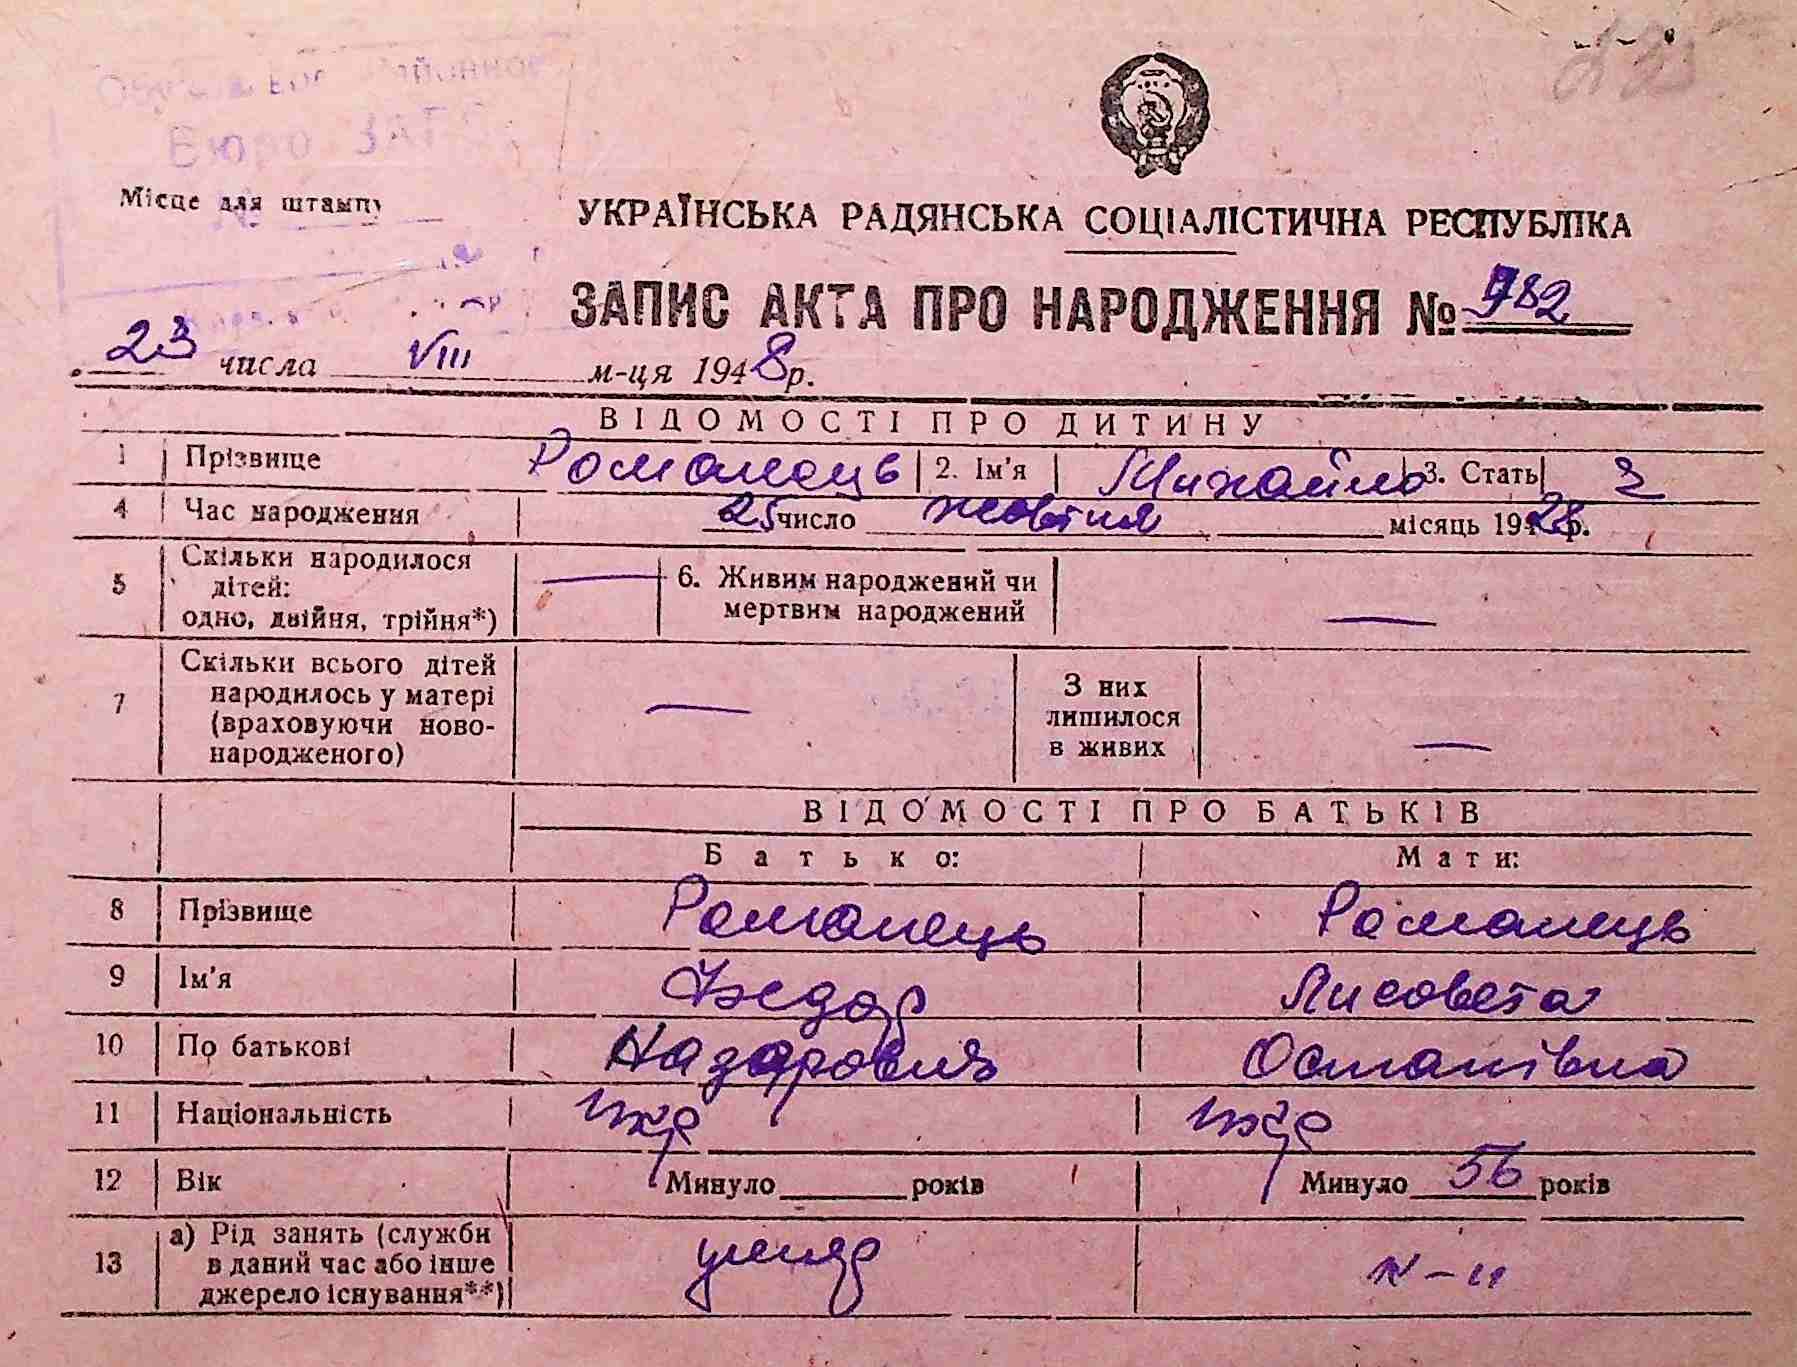 Бюро ЗАГС
Місце для штампу
УКРАЇНСЬКА РАДЯНСЬКА СОЦІАЛІСТИЧНА РЕСПУБЛІКА
ЗАПИС АКТА ПРО НАРОДЖЕННЯ № 782
23 числа VIII м-ця 1948 р.
ВІДОМОСТІ ПРО ДИТИНУ
1 Прізвище Романець 2. Ім'я Михайло 3. Стать ч
4 Час народження 25 число жовтня місяць 1928 р.
5 Скільки народилося дітей: одно, двійня, трійня*) — 6. Живим народжений чи мертвим народжений —
7 Скільки всього дітей народилось у матері (враховуючи новонародженого) — З них лишилося в живих —
ВІДОМОСТІ ПРО БАТЬКІВ
Батько: Мати:
8 Прізвище Романець Романець
9 Ім'я Федор Лисовета
10 По батькові Назарович Остапівна
11 Національність укр укр
12 Вік Минуло років Минуло 56 років
13 а) Рід занять (служби в даний час або інше джерело існування**) умер к-ц